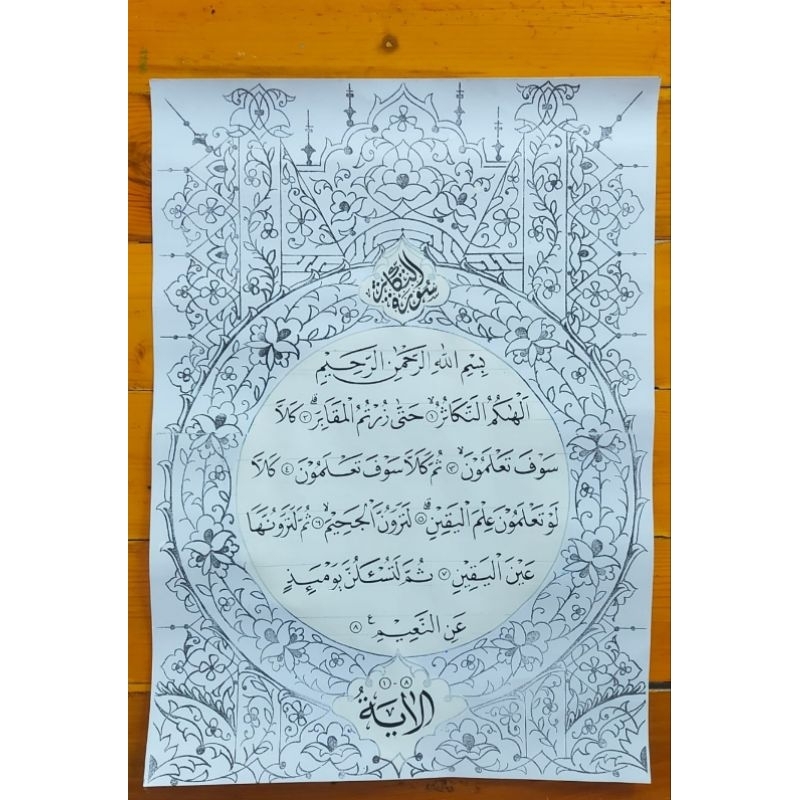 سورة التكاثر
بِسْمِ اللهِ الرَّحْمٰنِ الرَّحِيْمِ
اَلْهٰىكُمُ التَّكَاثُرُۙ ۝١ حَتّٰى زُرْتُمُ الْمَقَابِرَۗ ۝٢ كَلَّا
سَوْفَ تَعْلَمُوْنَۙ ۝٣ ثُمَّ كَلَّا سَوْفَ تَعْلَمُوْنَ ۝٤ كَلَّا
لَوْ تَعْلَمُوْنَ عِلْمَ الْيَقِيْنِۗ ۝٥ لَتَرَوُنَّ الْجَحِيْمَۙ ۝٦ ثُمَّ لَتَرَوُنَّهَا
عَيْنَ الْيَقِيْنِۙ ۝٧ ثُمَّ لَتُسْـَٔلُنَّ يَوْمَئِذٍ
عَنِ النَّعِيْمِ ࣖ ۝٨
١ - ٨
الاٰية